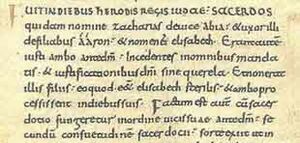 FUIT IN DIEBUS HERODIS REGIS IUDAEAE SACERDOS
quidam nomine zacharias de uice abia & uxor illi
de filiabus aaron & nomen ei elisabeth Erant autem
iusti ambo ante dm Incedentes in omnibus manda
tis & iustificationibus dni sine querela Et non erat
illis filius eo quod ess& elisabeth sterilis & ambo pro
cessissent in diebus suis Factum est autem cum sacer
dotio fungeretur in ordine uicis suae ante dm se
cundum consuetudinem sacerdotii sorte exiit ut in